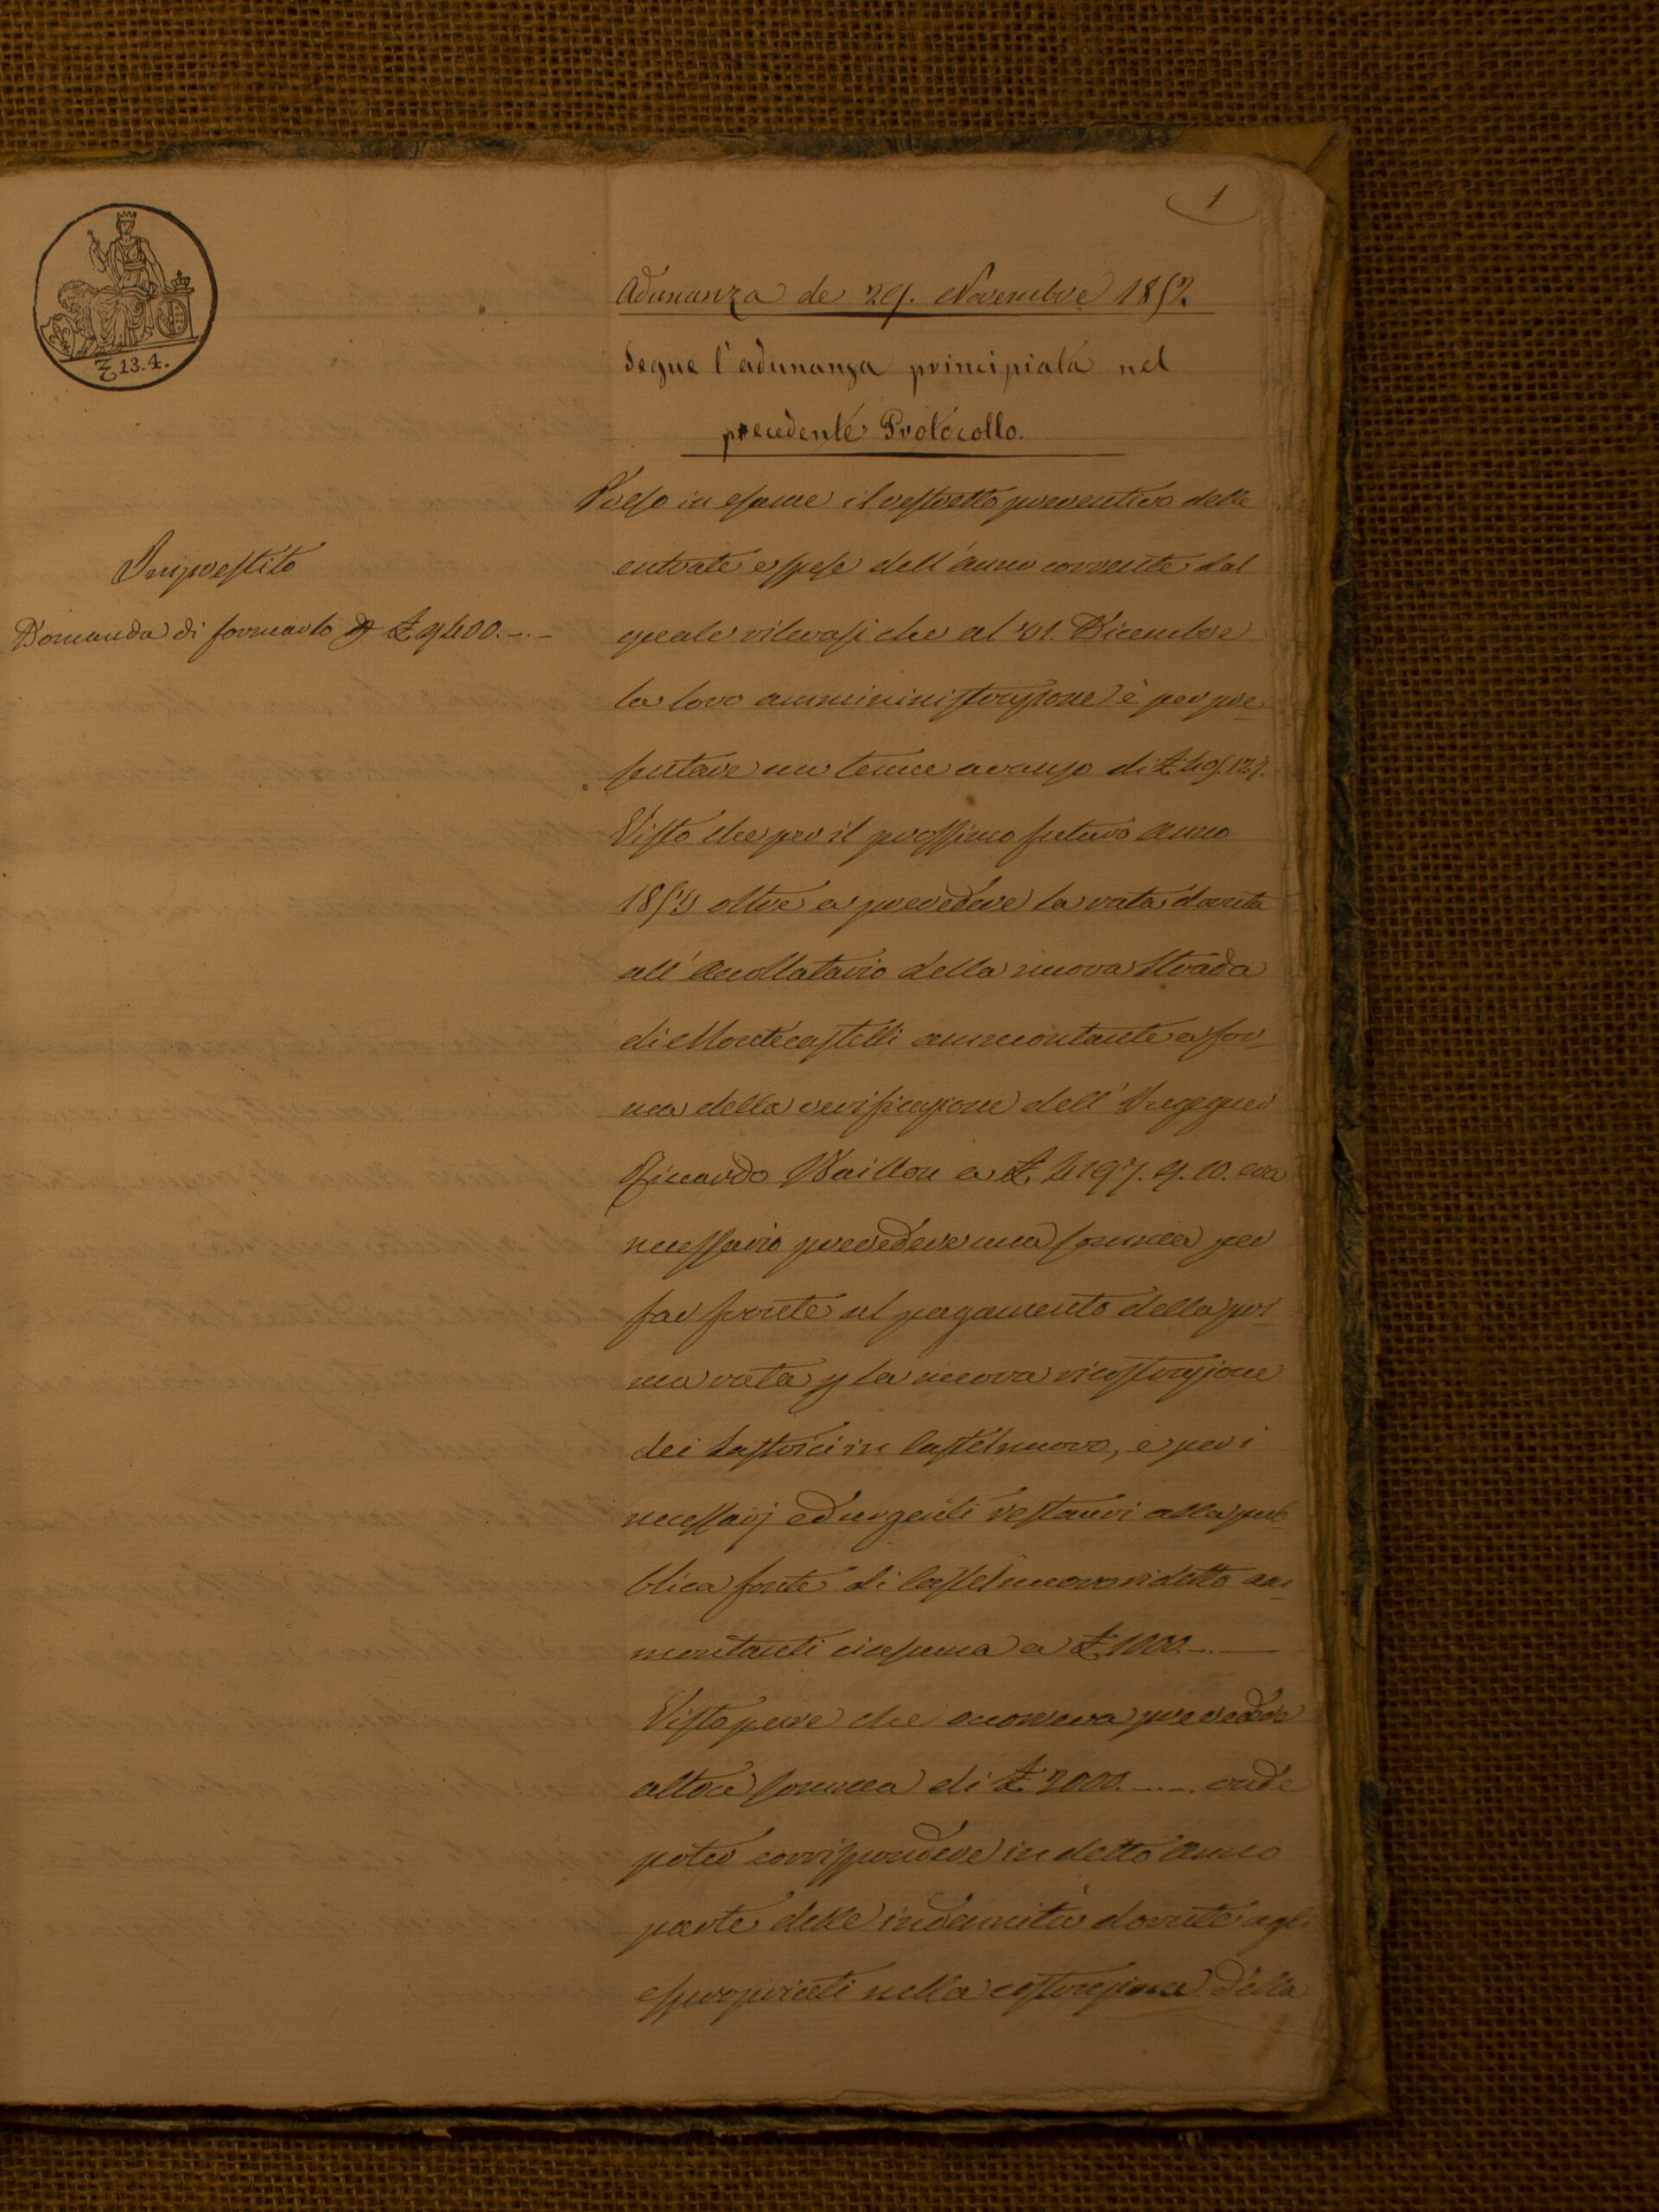 1
₤ 13.4.
Adunanza de 29. Novembre 1852
Segue l'adunanza principiata nel
precedente Protocollo.
Imprestito
Domanda di formarlo di £ 9400.-.-
Preso in esame il ristretto preventivo delle
entrate e spese dell'anno corrente dal
quale rilevasi che al 31. Dicembre
la loro ammininistrazione è per pre_
sentare un tenue avanzo di £ 409.12.7.
Visto che per il prossimo futuro anno
1853 oltre a prevedere la rata dovuta
all'Accollatario della nuova Strada
di Montecastelli ammontante a for_
ma della verificazione dell'Ingegner
Riccardo Baillou a £ 4197.9.10. era
necessario prevedere una somma per
far fronte al pagamento della pri_
ma rata p la nuova ricostruzione
dei Lastrici in Castelnuovo, e per i
necessarj ed urgenti restauri alla pub_
blica fonte di Castelnuovo ridetto am_
montanti ciascuna a £ 1000.-.-
Visto pure che occorreva prevedere
altra somma di £ 2000.-.-. onde
poter corrispondere in detto anno
parte delle indennità dovute agli
espropriati nella costruzione della